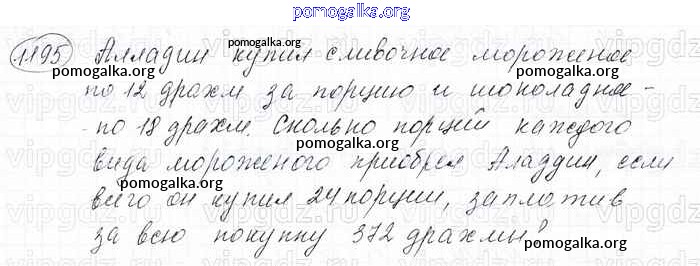 pomogalka.org
1195 Алладин купил сливочное мороженое
pomogalka.org
pomogalka.org
по 12 драхм за порцию и шоколадное -
pomogalka.org
по 18 драхм. Сколько порций каждого
pomogalka.org
вида мороженого приобрел Аладдин, если
pomogalka.org
всего он купил 24 порции, заплатив
pomogalka.org
за всю покупку 372 драхмы?
pomogalka.org